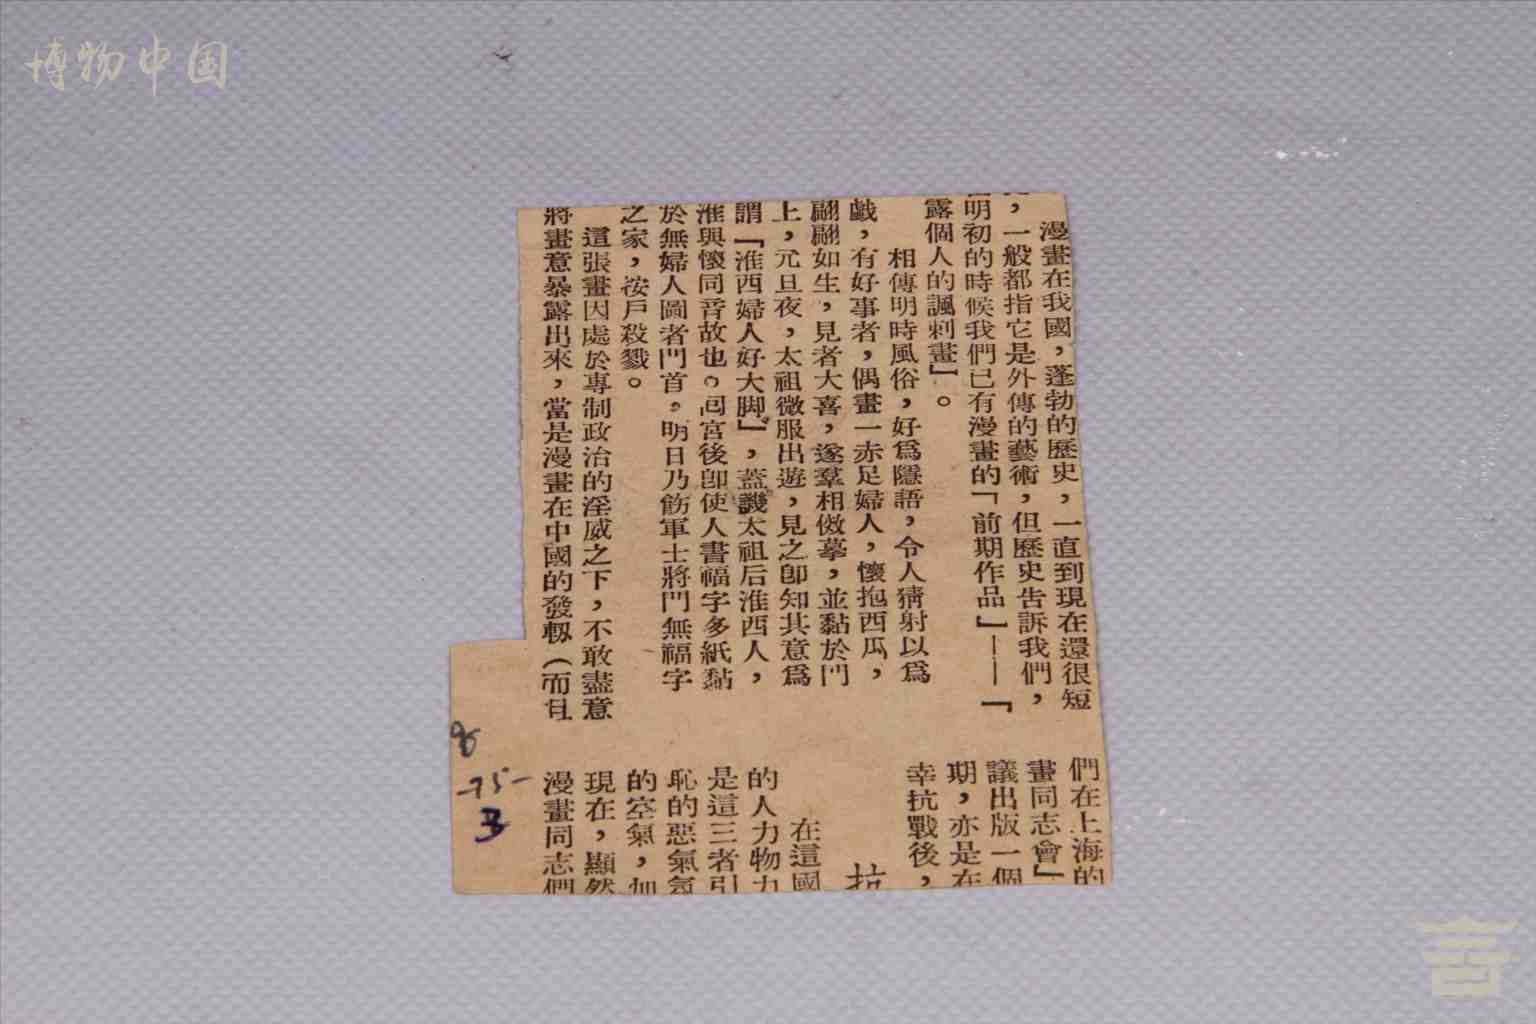 博物中国
漫畫在我國，蓬勃的歷史，一直到現在還很短
，一般都指它是外傳的藝術，但歷史告訴我們，
明初的時候我們已有漫畫的「前期作品」——「
露個人的諷刺畫」。
相傳明時風俗，好爲隱語，令人猜射以爲
戲，有好事者，偶畫一赤足婦人，懷抱西瓜，
翩翩如生，見者大喜，遂羣相傚摹，並黏於門
上，元旦夜，太祖微服出遊，見之卽知其意爲
謂「淮西婦人好大脚」，蓋譏太祖后淮西人，
淮與懷同音故也。囘宮後卽使人書福字多紙黏
於無婦人圖者門首。明日乃飭軍士將門無福字
之家，按戶殺戮。
這張畫因處於專制政治的淫威之下，不敢盡意
將畫意暴露出來，當是漫畫在中國的發軔（而且
們在上海的
畫同志會」
議出版一個
期，亦是在
幸抗戰後，
抗
在這國
的人力物力
是這三者引
恥的惡氣氛
的空氣，如
現在，顯然
漫畫同志們
8
-75-
3